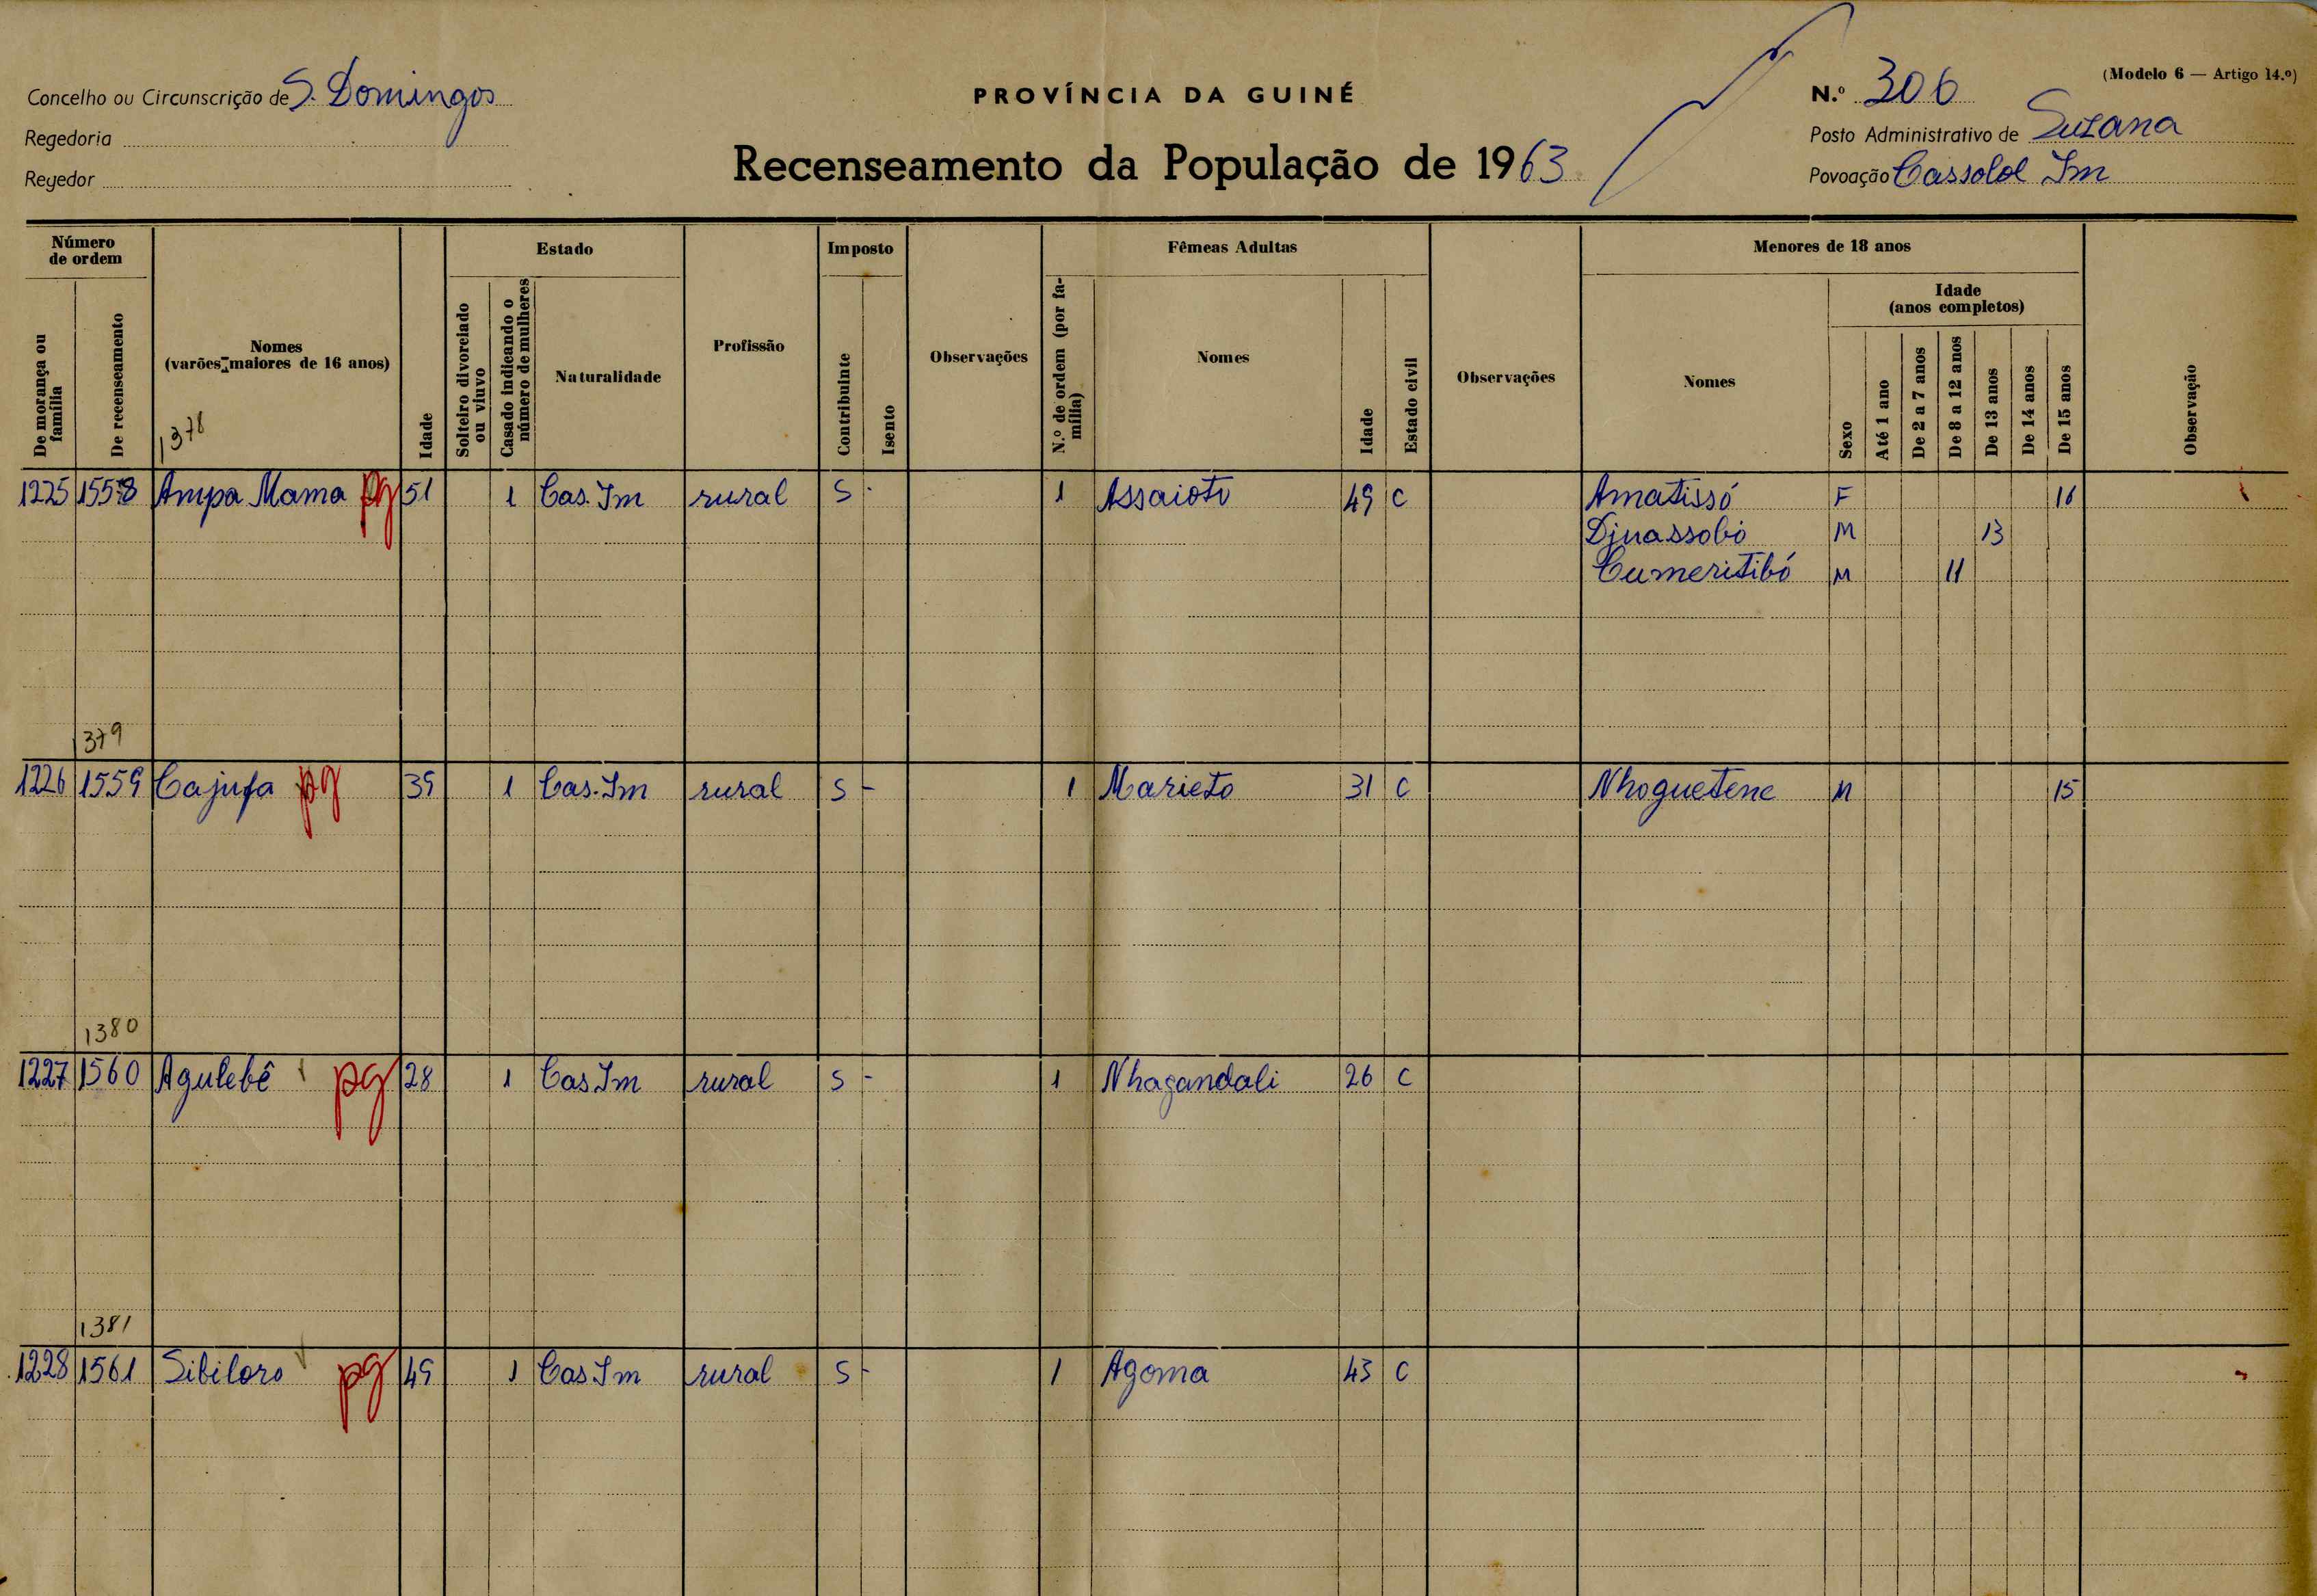 (Modelo 6 — Artigo 14.º)
Concelho ou Circunscrição de S. Domingos
PROVÍNCIA DA GUINÉ
N.º 306
Regedoria
Posto Administrativo de Suzana
Recenseamento da População de 1963
Regedor
Povoação Cassolol Im
Número de ordem
Estado
Imposto
Fêmeas Adultas
Menores de 18 anos
De morança ou família
De recenseamento
Nomes
(varões maiores de 16 anos)
Idade
Solteiro divorciado ou viuvo
Casado indicando o número de mulheres
Naturalidade
Profissão
Contribuinte
Isento
Observações
N.º de ordem (por família)
Nomes
Idade
Estado civil
Observações
Nomes
Sexo
Idade
(anos completos)
Até 1 ano
De 2 a 7 anos
De 8 a 12 anos
De 13 anos
De 14 anos
De 15 anos
Observação
1378
1225 1558 Ampa Mama pg 51 1 Cas. Im rural S - 1 Assaioti 49 C Amatissó F 16
Djuassobó M 13
Cumeritibó M 11
1379
1226 1559 Cajufa pg 39 1 Cas. Im rural S - 1 Marieto 31 C Nhoguetene M 15
1380
1227 1560 Agulebê pg 28 1 Cas Im rural S - 1 Nhagandali 26 C
1381
1228 1561 Sibiloro pg 49 1 Cas Im rural S - 1 Agoma 43 C